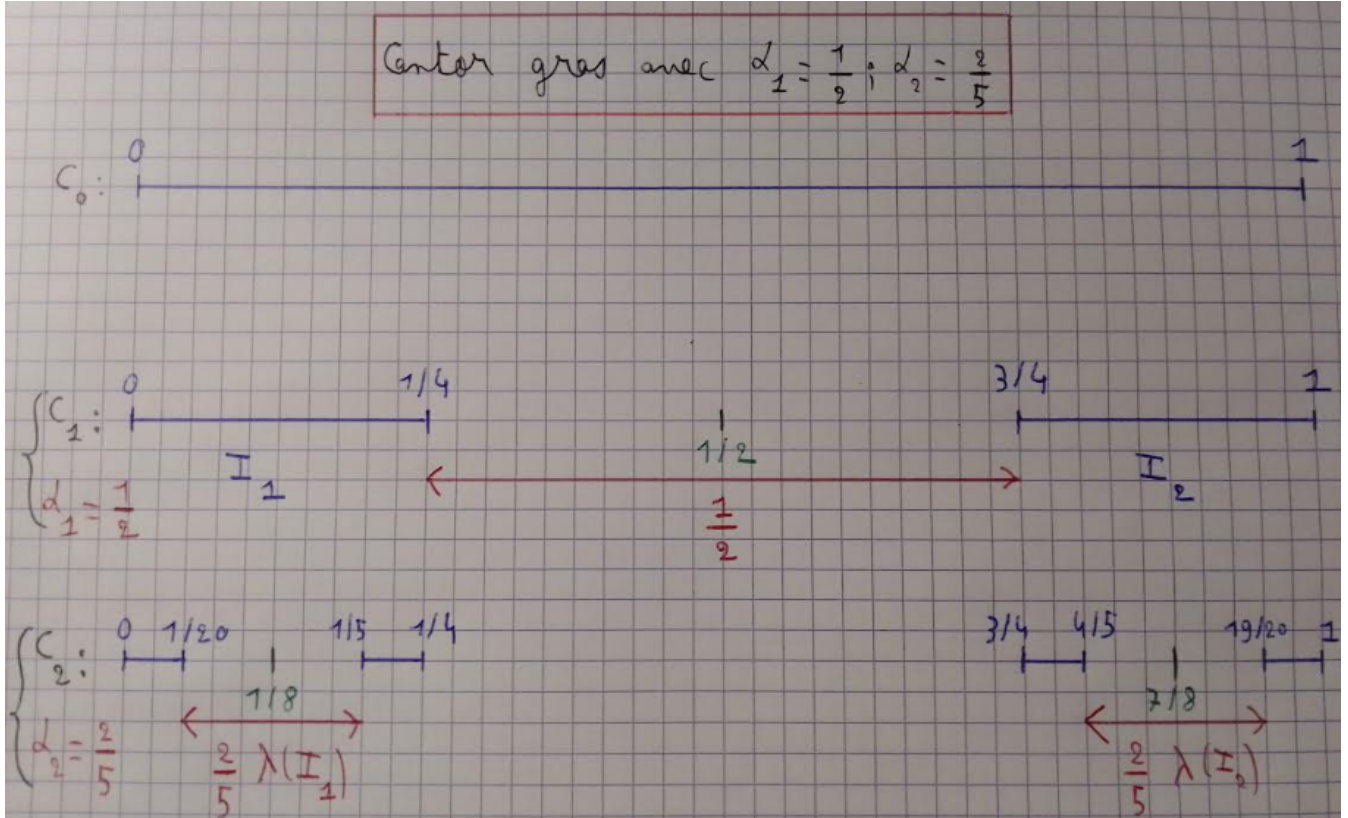 Cantor gras avec α₁ = 1/2 ; α₂ = 2/5
0 1
C₀:
0 1/4 3/4 1
C₁:
1/2
I₁ I₂
α₁ = 1/2
1/2
0 1/20 1/5 1/4 3/4 4/5 19/20 1
C₂:
1/8 7/8
α₂ = 2/5
2/5 λ(I₁) 2/5 λ(I₂)